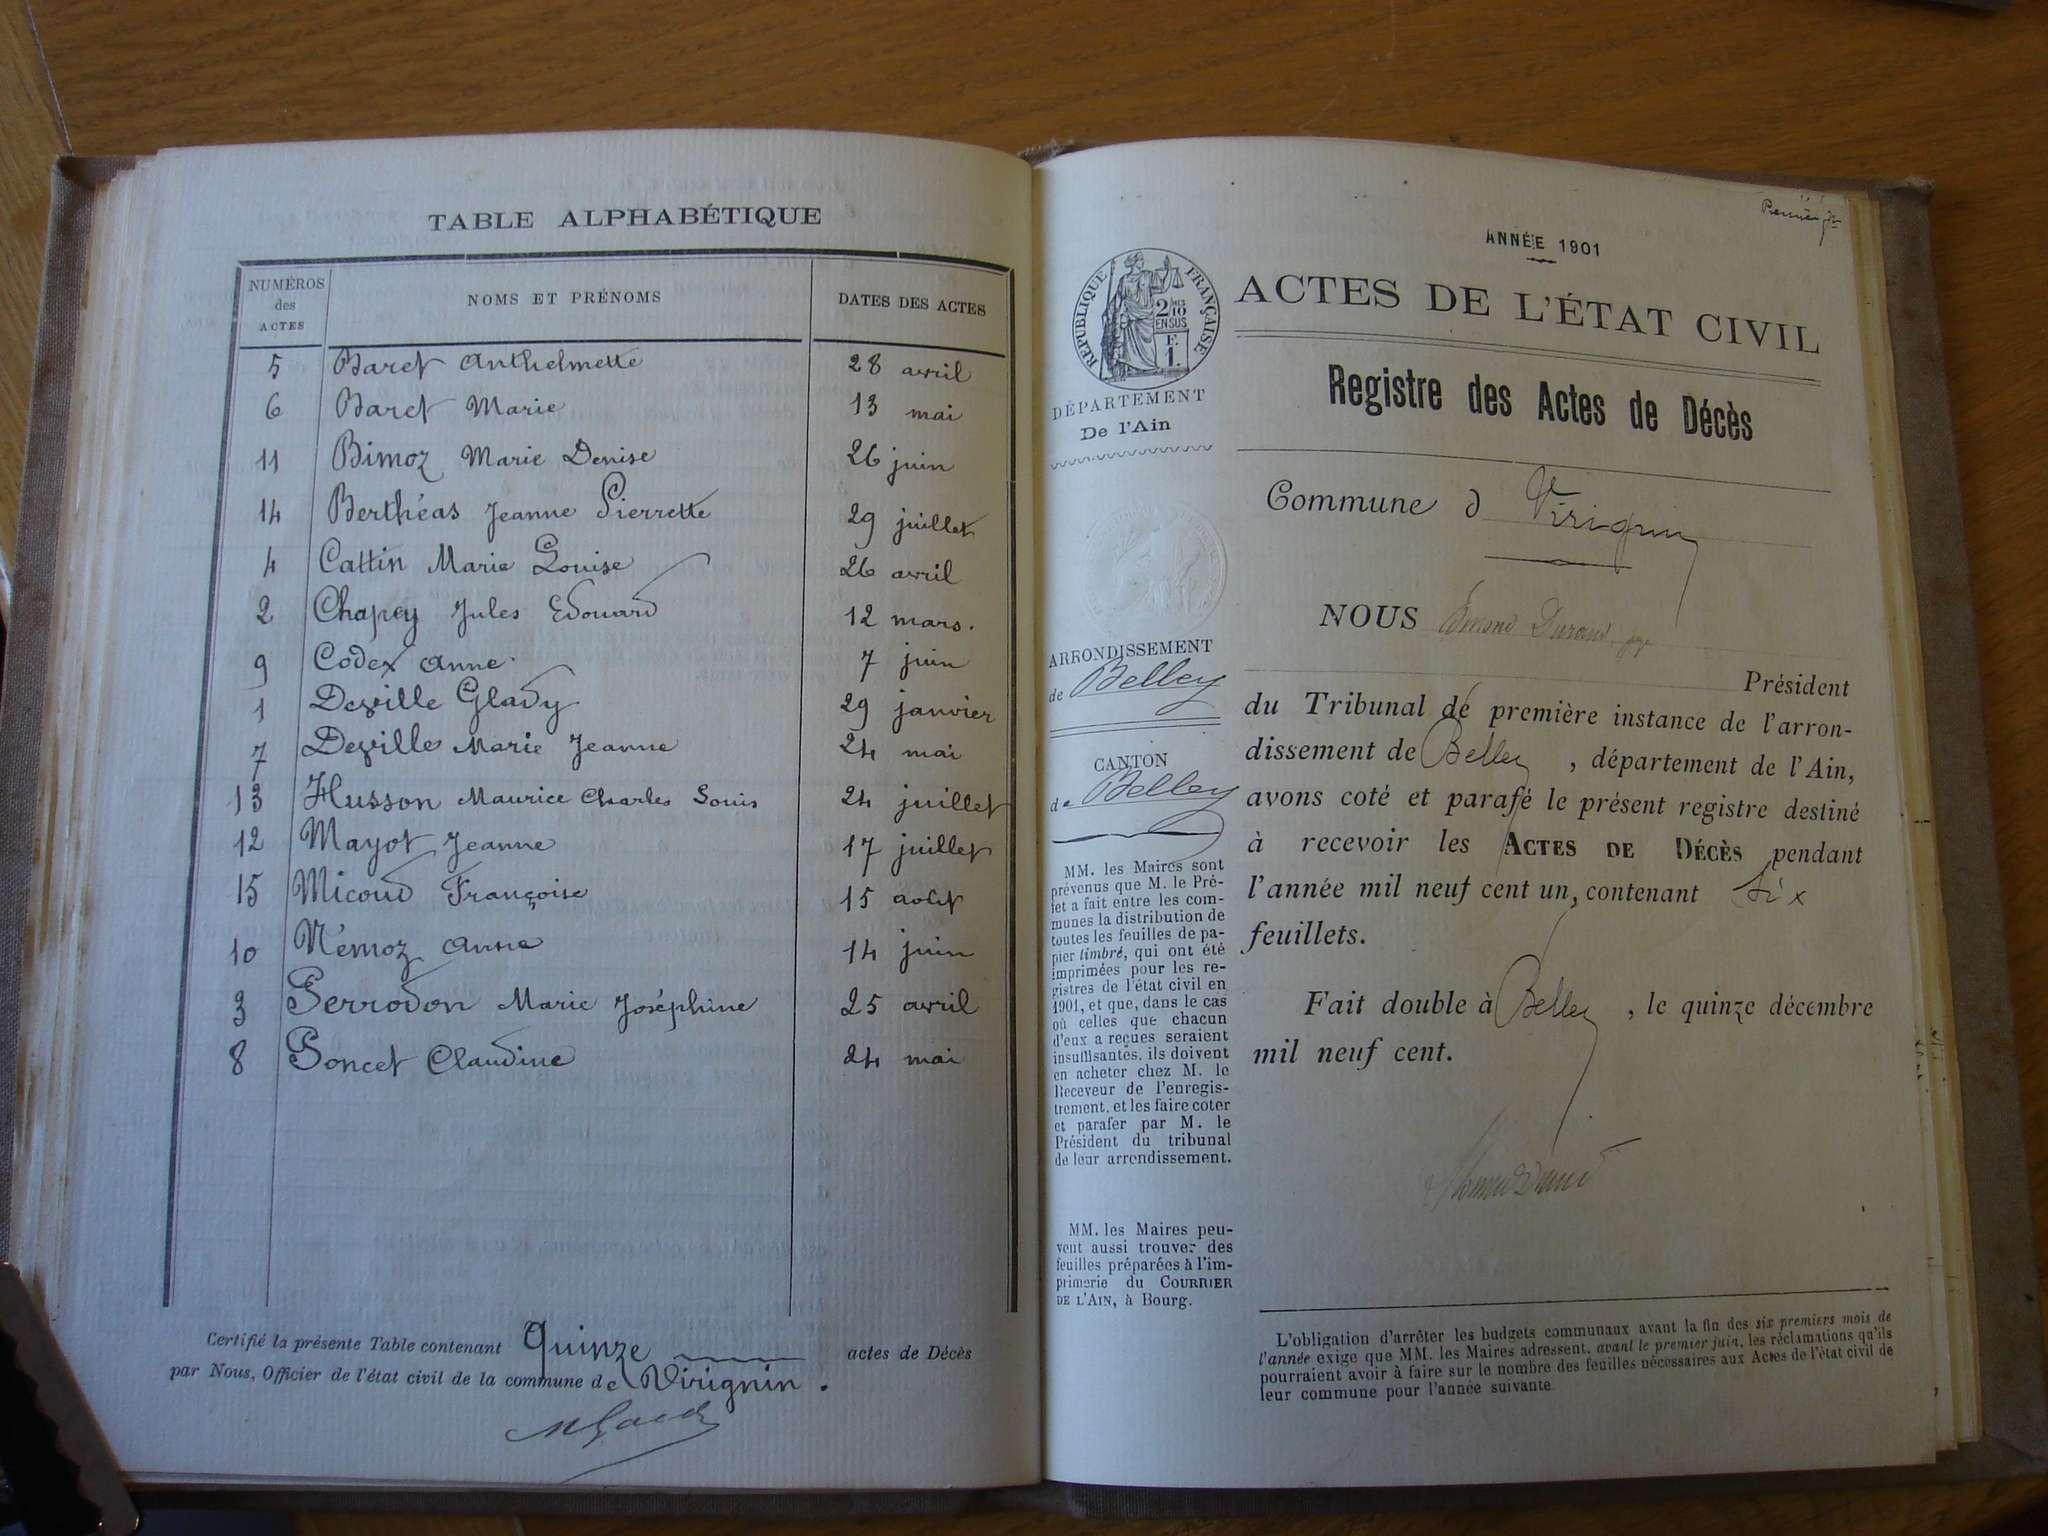 TABLE ALPHABÉTIQUE
NUMÉROS des ACTES NOMS ET PRÉNOMS DATES DES ACTES
5 Baret Anthelmette 28 avril
6 Baret Marie 13 mai
11 Bimoz Marie Denise 26 juin
14 Berthéas Jeanne Pierrette 29 juillet
4 Cattin Marie Louise 26 avril
2 Chapey Jules Edouard 12 mars.
9 Codex Anne 7 juin
1 Deville Glady 29 janvier
7 Deville Marie Jeanne 24 mai
13 Husson Maurice Charles Louis 24 juillet
12 Mayot Jeanne 17 juillet
15 Micoud Françoise 15 août
10 Némoz Anne 14 juin
3 Perrodon Marie Joséphine 25 avril
8 Poncet Claudine 24 mai
Certifié la présente Table contenant Quinze actes de Décès
par Nous, Officier de l'état civil de la commune de Virignin.
ANNÉE 1901
RÉPUBLIQUE FRANÇAISE
2/10 EN SUS
F.
1.
ACTES DE L'ÉTAT CIVIL
DÉPARTEMENT
De l'Ain
Registre des Actes de Décès
Commune d Virignin
ARRONDISSEMENT
de Belley
CANTON
de Belley
MM. les Maires sont
prévenus que M. le Pré-
fet a fait entre les com-
munes la distribution de
toutes les feuilles de pa-
pier timbré, qui ont été
imprimées pour les re-
gistres de l'état civil en
1901, et que, dans le cas
où celles que chacun
d'eux a reçues seraient
insuffisantes, ils doivent
en acheter chez M. le
Receveur de l'enregis-
trement, et les faire coter
et parafer par M. le
Président du tribunal
de leur arrondissement.
MM. les Maires peu-
vent aussi trouver des
feuilles préparées à l'im-
primerie du COURRIER
DE L'AIN, à Bourg.
NOUS Edmond Durand juge
Président
du Tribunal de première instance de l'arron-
dissement de Belley, département de l'Ain,
avons coté et parafé le présent registre destiné
à recevoir les ACTES DE DÉCÈS pendant
l'année mil neuf cent un, contenant six
feuillets.
Fait double à Belley, le quinze décembre
mil neuf cent.
L'obligation d'arrêter les budgets communaux avant la fin des six premiers mois de
l'année exige que MM. les Maires adressent, avant le premier juin, les réclamations qu'ils
pourraient avoir à faire sur le nombre des feuilles nécessaires aux Actes de l'état civil de
leur commune pour l'année suivante